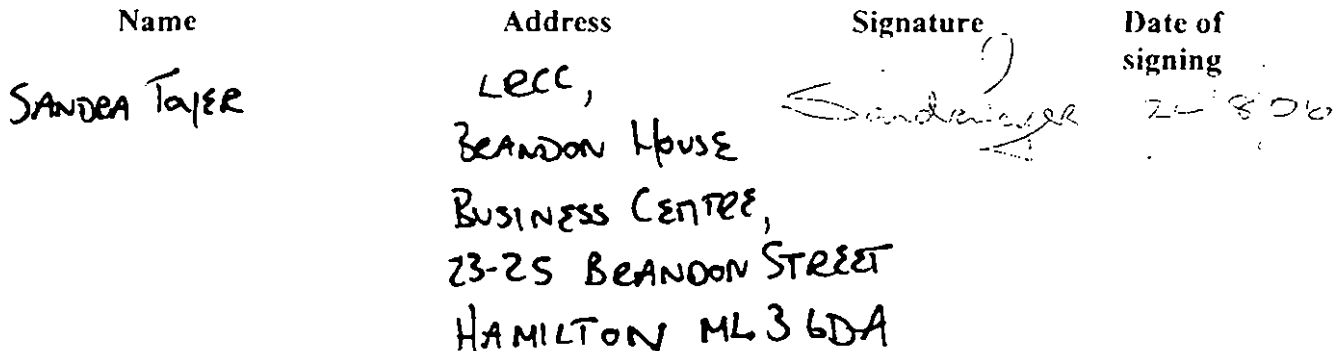 Name Address Signature Date of signing
SANDRA TAYER
LRCC,
BRANDON HOUSE
BUSINESS CENTRE,
23-25 BRANDON STREET
HAMILTON ML3 6DA